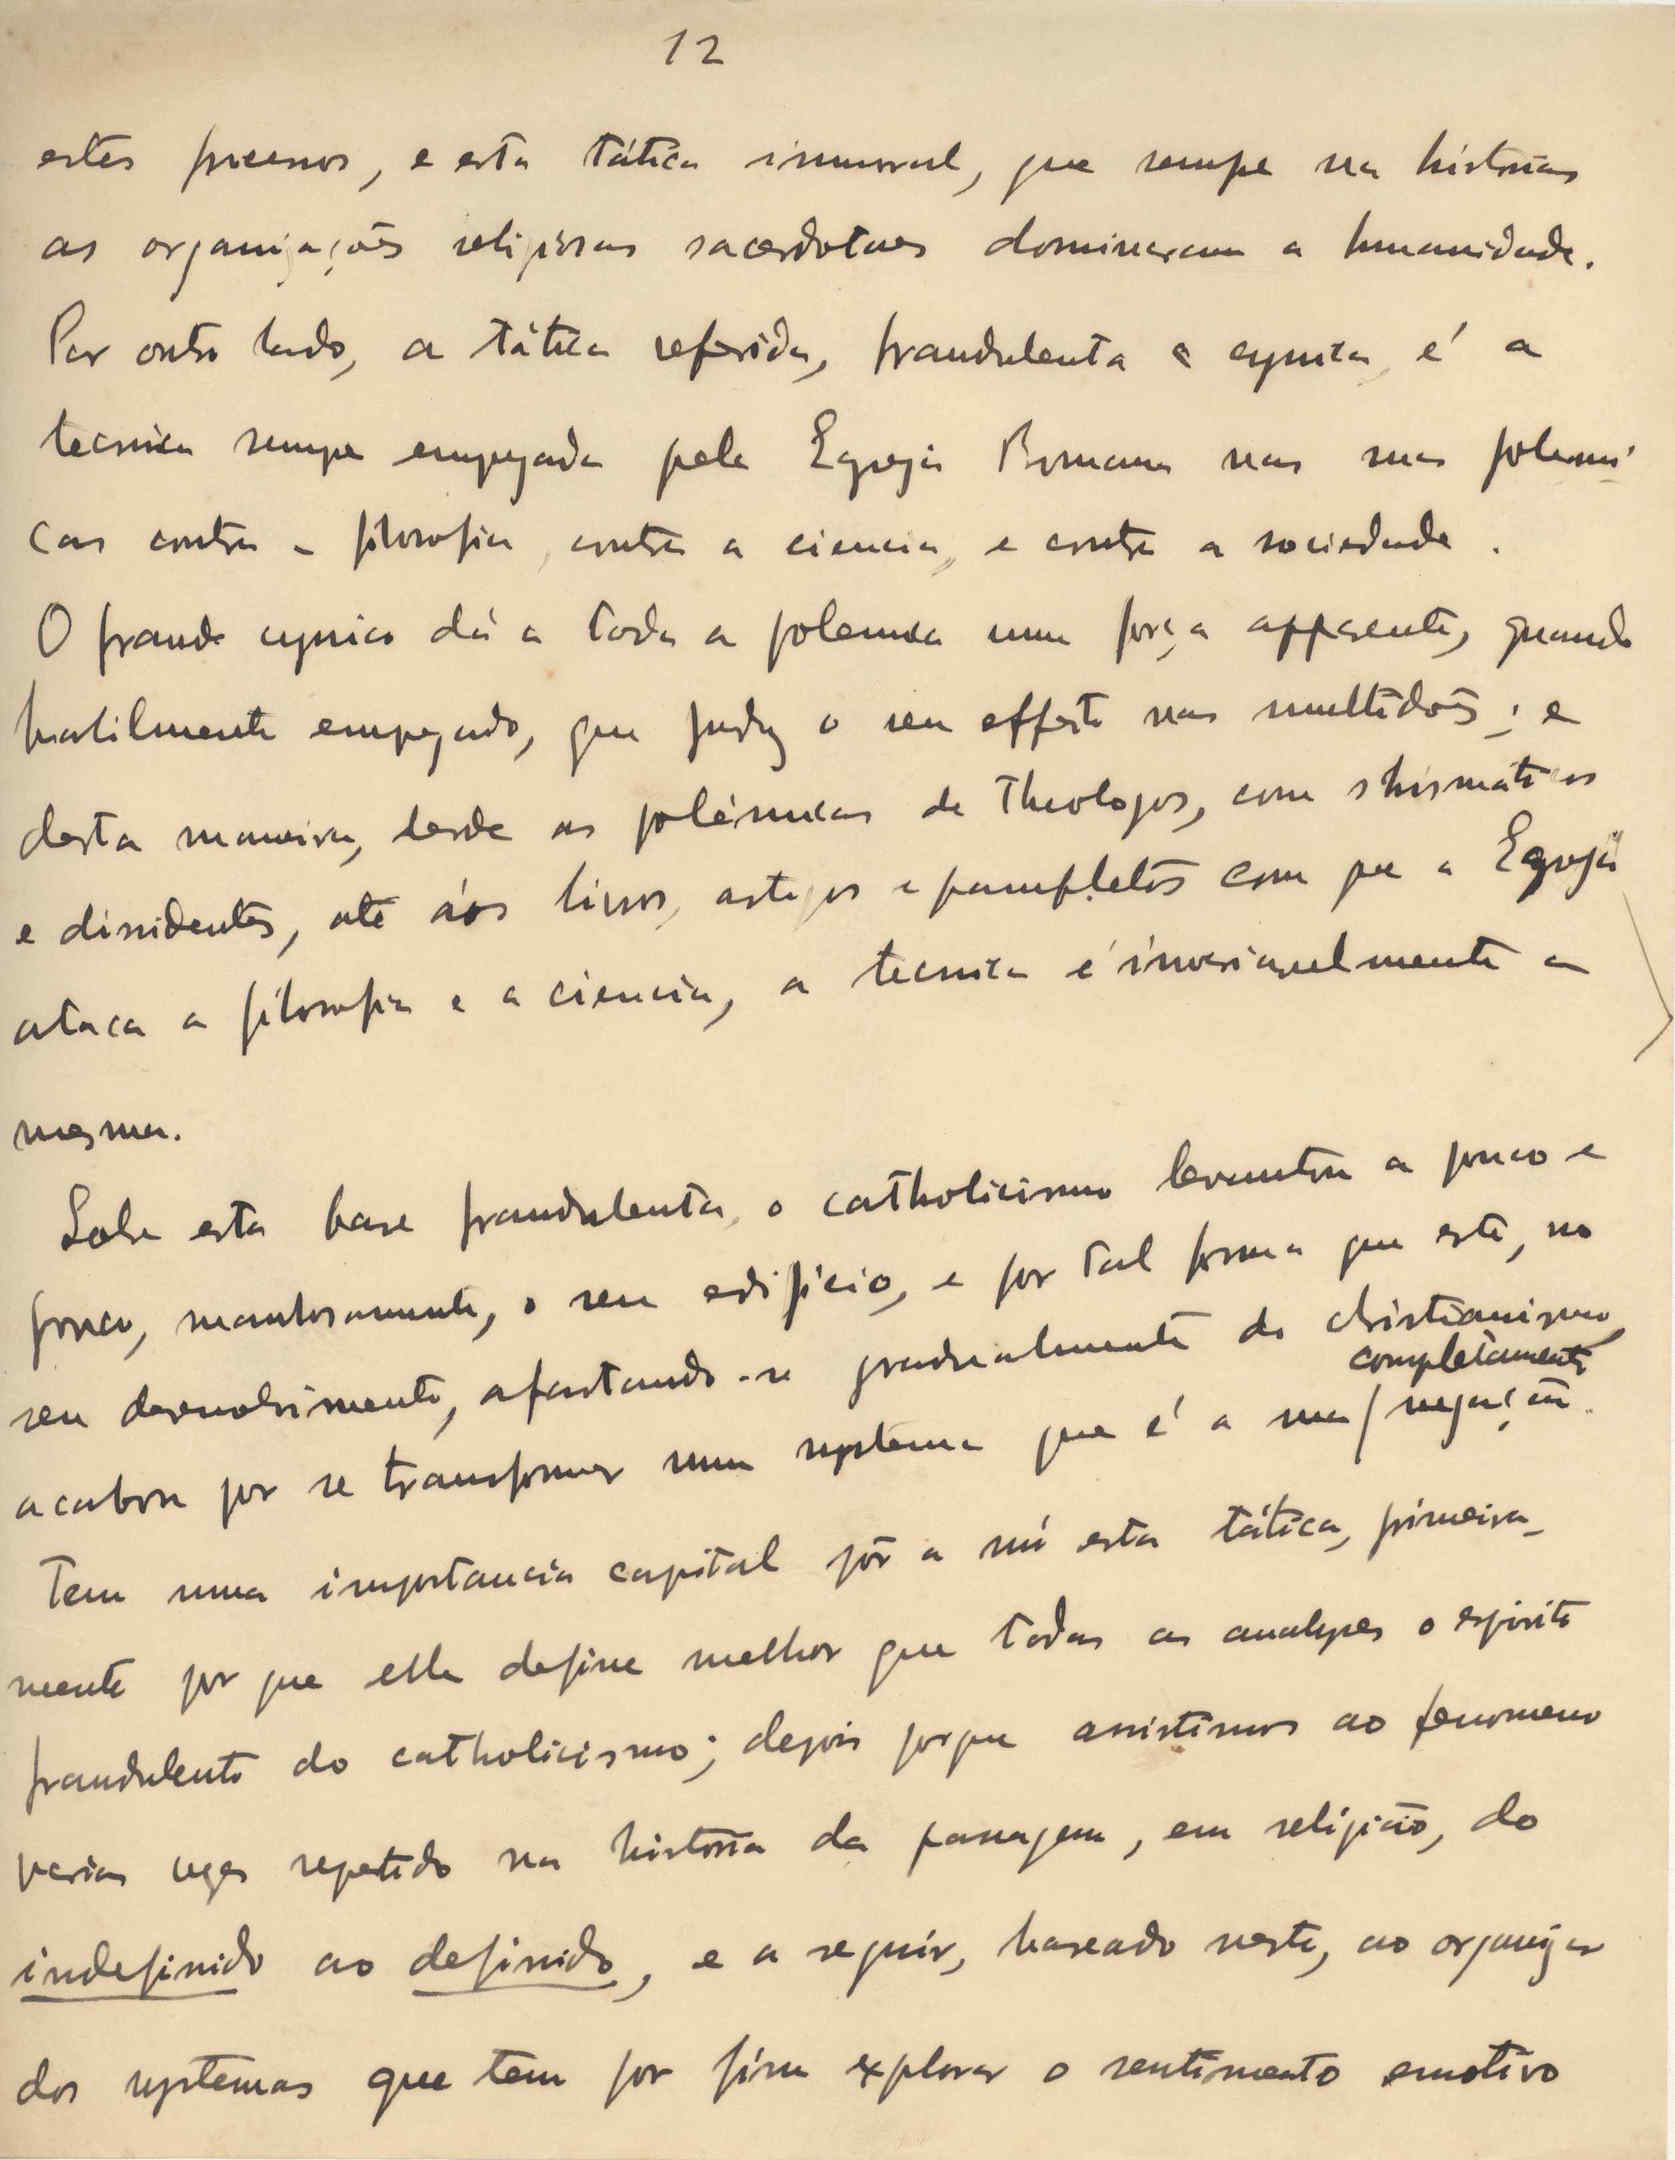 12
estes processos, e esta tática immoral, que sempre na historia
as organizações religiosas sacerdotaes dominaram a humanidade.
Por outro lado, a tática referida, fraudulenta e cynica, é a
tecnica sempre empregada pela Egreja Romana nas suas polemi-
cas contra a filosofia, contra a ciencia, e contra a sociedade.
O fraude cynico dá a toda a polemica uma força apparente, quando
habilmente empregado, que produz o seu effeito nas multidões; e
desta maneira, desde as polémicas de Theologos, com shismáticos
e dissidentes, até áos livros, artigos e pamfletos com que a Egreja
ataca a filosofia e a ciencia, a tecnica é invariavelmente a
mesma.
Sobre esta base fraudulenta, o catholicismo levantou a pouco e
pouco, manhosamente, o seu edificio, e por tal forma que este, no
seu desenvolvimento, afastando-se gradualmente do christianismo,
completamente
acabou por se transformar num systema que é a sua / negação.
Tem uma importancia capital pôr a nú esta tática, primeira-
mente por que ella define melhor que todas as analyses o espirito
fraudulento do catholicismo; depois porque assistimos ao fenomeno
varias vezes repetido na historia da passagem, em religião, do
indefinido ao definido, e a seguir, baseado neste, ao organizar
dos systemas que tem por fim explorar o sentimento emotivo